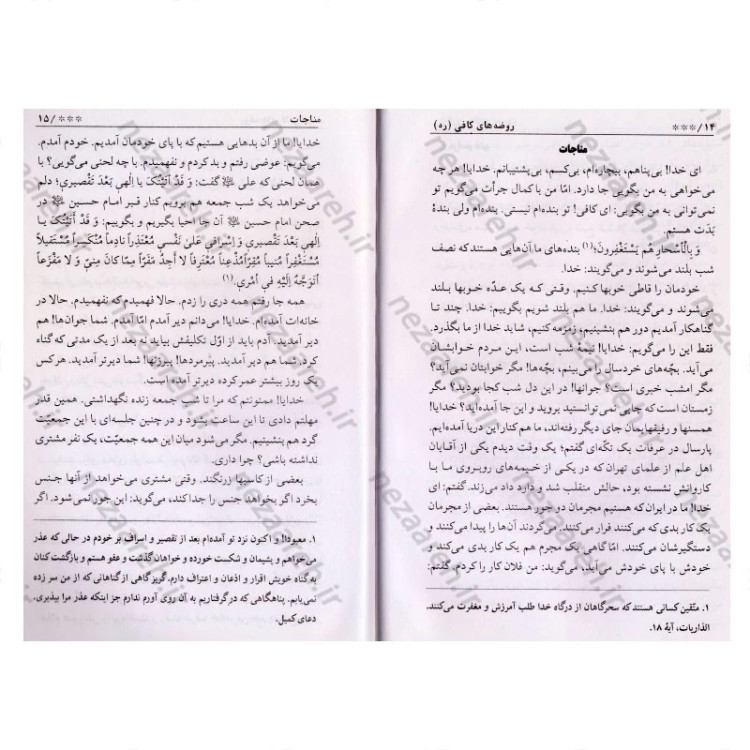 ۱۴/*** روضه‌های کافی (ره)
مناجات
ای خدا! بی‌پناهم، بیچاره‌ام، بی‌کسم، بی‌پشتیبانم. خدایا! هر چه
می‌خواهی به من بگویی جا دارد. امّا من با کمال جرأت می‌گویم تو
نمی‌توانی به من بگویی: ای کافی! تو بنده‌ام نیستی. بنده‌ام ولی بندهٔ
بَدَت هستم.
وَ بِالْأَسْحارِ هُم یَسْتَغْفِرونَ؛(۱) بنده‌های ما آن‌هایی هستند که نصف
شب بلند می‌شوند و می‌گویند: خدا.
خودمان را قاطی خوبها کنیم. وقتی که یک عدّه خوبها بلند
می‌شوند و می‌گویند: خدا. ما هم بلند شویم بگوییم: خدا. چند تا
گناهکار آمدیم دور هم بنشینیم، زمزمه کنیم، شاید خدا از ما بگذرد.
فقط این را می‌گویم: خدایا! نیمه شب است، این مردم خوابشان
می‌آید. بچّه‌های خردسال را می‌بینم، بچّه‌ها! مگر خوابتان نمی‌آید؟
مگر امشب خبری است؟ جوانها! در این دل شب کجا بودید؟ مگر
زمستان است که جایی نمی‌توانستید بروید و این جا آمده‌اید؟ خدایا!
همسنها و رفیقهایمان جای دیگر رفته‌اند، ما هم کنار این دریا آمده‌ایم.
پارسال در عرفات یک تکّه‌ای گفتم؛ یک وقت دیدم یکی از آقایان
اهل علم از علمای تهران که در یکی از خیمه‌های روبروی ما با
کاروانش نشسته بود، حالش منقلب شد و داد می‌زند. گفتم: ای
خدا! ما در ایران که هستیم مجرمان دو جور هستند. بعضی از مجرمان
یک کار بدی که می‌کنند فرار می‌کنند. می‌گردند آن‌ها را پیدا می‌کنند و
دستگیرشان می‌کنند. امّا گاهی یک مجرم هم یک کار بدی می‌کند و
خودش با پای خودش می‌آید، می‌گوید: من فلان کار را کردم. گفتم:
۱. متّقین کسانی هستند که سحرگاهان از درگاه خدا طلب آمرزش و مغفرت می‌کنند.
الذاریات، آیهٔ ۱۸.
مناجات ***/۱۵
خدایا! ما از آن بدهایی هستیم که با پای خودمان آمدیم. خودم آمدم.
می‌گویم: عوضی رفتم و بد کردم و نفهمیدم. با چه لحنی می‌گویی؟ با
همان لحنی که علی ﷺ گفت: وَ قَدْ أَتَیْتُکَ یا إِلهی بَعْدَ تَقْصیری؛ دلم
می‌خواهد یک شب جمعه هم برویم کنار قبر امام حسین ﷺ در
صحن امام حسین ﷺ آن جا احیا بگیریم و بگوییم: وَ قَدْ أَتَیْتُکَ یا
إِلهی بَعْدَ تَقْصیری وَ إِسْرافی عَلیٰ نَفْسی مُعْتَذِراً نادِماً مُنْکَسِراً مُسْتَقیلاً
مُسْتَغْفِراً مُنیباً مُقِرّاً مُذْعِناً مُعْتَرِفاً لا أَجِدُ مَفَرّاً مِمّا کانَ مِنّی وَ لا مَفْزَعاً
أَتَوَجَّهُ إِلَیْهِ فی أَمْری.(۱)
همه جا رفتم همه دری را زدم. حالا فهمیدم که نفهمیدم. حالا در
خانه‌ات آمده‌ام. خدایا! می‌دانم دیر آمدم امّا آمدم. شما جوان‌ها! هم
دیر آمدید. آدم باید از اوّل تکلیفش بیاید نه بعد از یک مدتی که گناه
کرد. شما هم دیر آمدید. پیرمردها! پیرزنها! شما دیرتر آمدید. هرکس
یک روز بیشتر عمر کرده دیرتر آمده است.
خدایا! ممنونتم که مرا تا شب جمعه زنده نگهداشتی. همین قدر
مهلتم دادی تا این ساعت بشود و در چنین جلسه‌ای با این جمعیّت
گرد هم بنشینیم. مگر می‌شود میان این همه جمعیّت، یک نفر مشتری
نداشته باشی؟ چرا داری.
بعضی از کاسبها زرنگند. وقتی مشتری می‌خواهد از آنها جنس
بخرد اگر بخواهد جنس را جدا کند، می‌گوید: این جور نمی‌شود. اگر
۱. معبودا! و اکنون نزد تو آمده‌ام بعد از تقصیر و اسراف بر خودم در حالی که عذر
می‌خواهم و پشیمان و شکست خورده و خواهان گذشت و عفو هستم و بازگشت کنان
به گناه خویش اقرار و اذعان و اعتراف دارم. گریزگاهی از گناهانی که از من سر زده
نمی‌یابم. پناهگاهی که در گرفتاریم به آن روی آورم ندارم جز اینکه عذر مرا بپذیری.
دعای کمیل.
nezaareh.ir